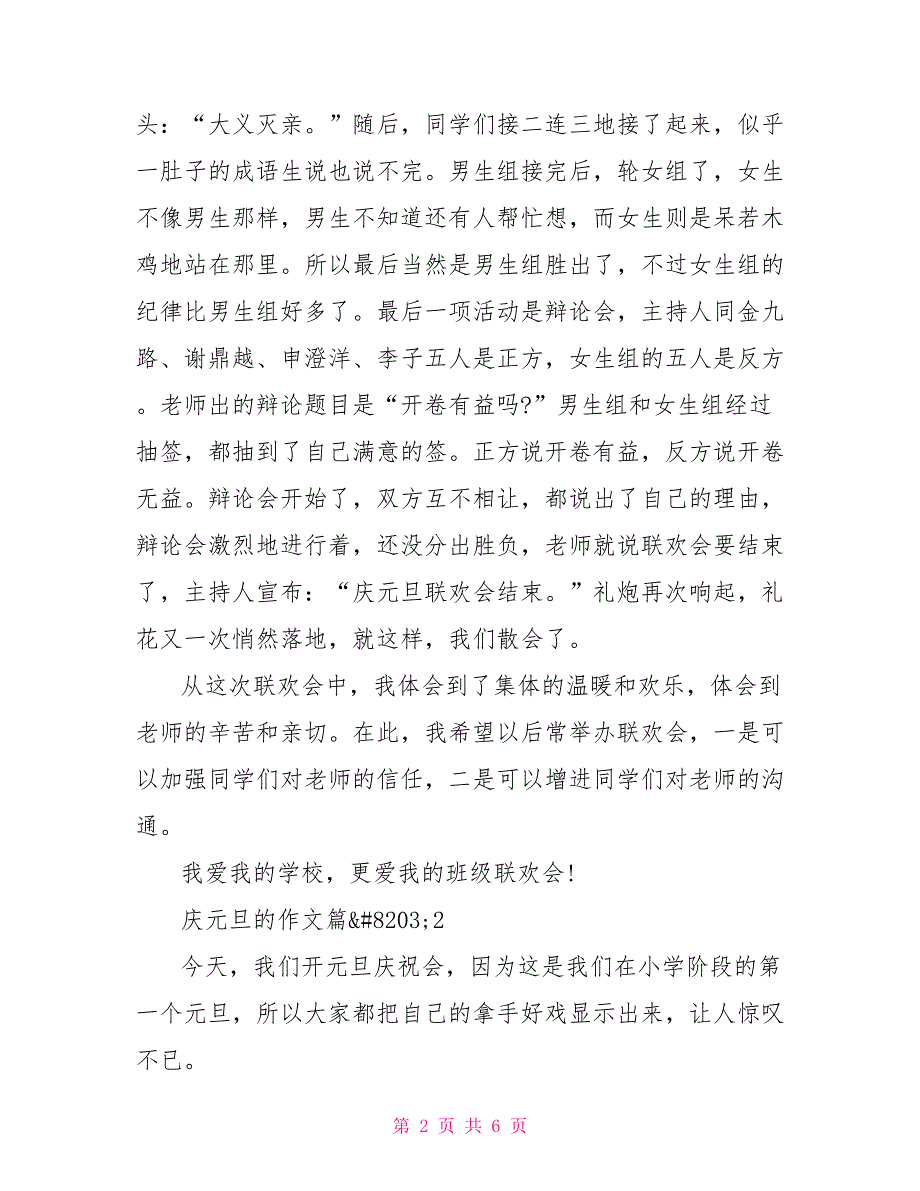 头：“大义灭亲。”随后，同学们接二连三地接了起来，似乎
一肚子的成语生说也说不完。男生组接完后，轮女组了，女生
不像男生那样，男生不知道还有人帮忙想，而女生则是呆若木
鸡地站在那里。所以最后当然是男生组胜出了，不过女生组的
纪律比男生组好多了。最后一项活动是辩论会，主持人同金九
路、谢鼎越、申澄洋、李子五人是正方，女生组的五人是反方
。老师出的辩论题目是“开卷有益吗?”男生组和女生组经过
抽签，都抽到了自己满意的签。正方说开卷有益，反方说开卷
无益。辩论会开始了，双方互不相让，都说出了自己的理由，
辩论会激烈地进行着，还没分出胜负，老师就说联欢会要结束
了，主持人宣布：“庆元旦联欢会结束。”礼炮再次响起，礼
花又一次悄然落地，就这样，我们散会了。
从这次联欢会中，我体会到了集体的温暖和欢乐，体会到
老师的辛苦和亲切。在此，我希望以后常举办联欢会，一是可
以加强同学们对老师的信任，二是可以增进同学们对老师的沟
通。
我爱我的学校，更爱我的班级联欢会!
庆元旦的作文篇&#8203;2
今天，我们开元旦庆祝会，因为这是我们在小学阶段的第
一个元旦，所以大家都把自己的拿手好戏显示出来，让人惊叹
不已。
第 2 页 共 6 页